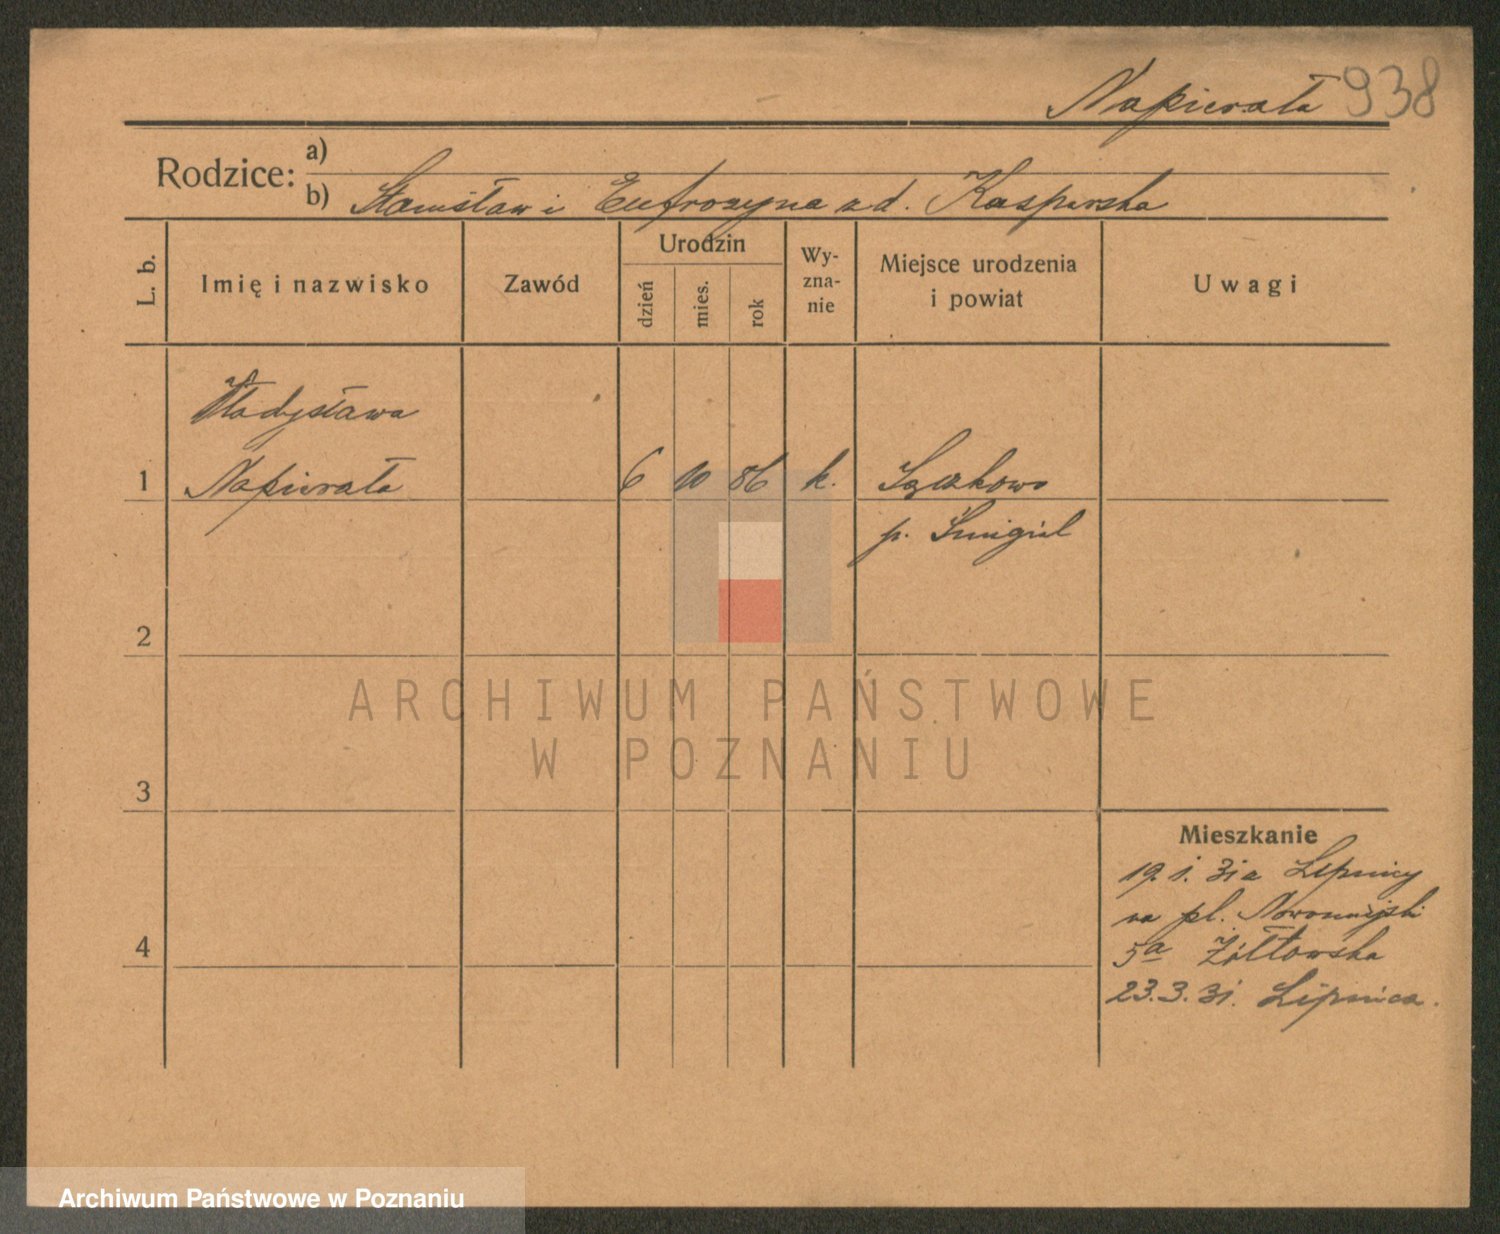 Napierała 938
Rodzice: a)
b) Stanisław i Eufrozyna z d. Kasperska
L. b.
Imię i nazwisko
Zawód
Urodzin
dzień
mies.
rok
Wy-
zna-
nie
Miejsce urodzenia
i powiat
Uwagi
Władysława
1 Napierała 6 10 86 k.
p. Śmigiel
2
3
4
Mieszkanie
19. 1. 31 z Lipnicy
na pl. Nowomiejski
5a Żółtowska
23. 3. 31. Lipnica.
ARCHIWUM PAŃSTWOWE
W POZNANIU
Archiwum Państwowe w Poznaniu